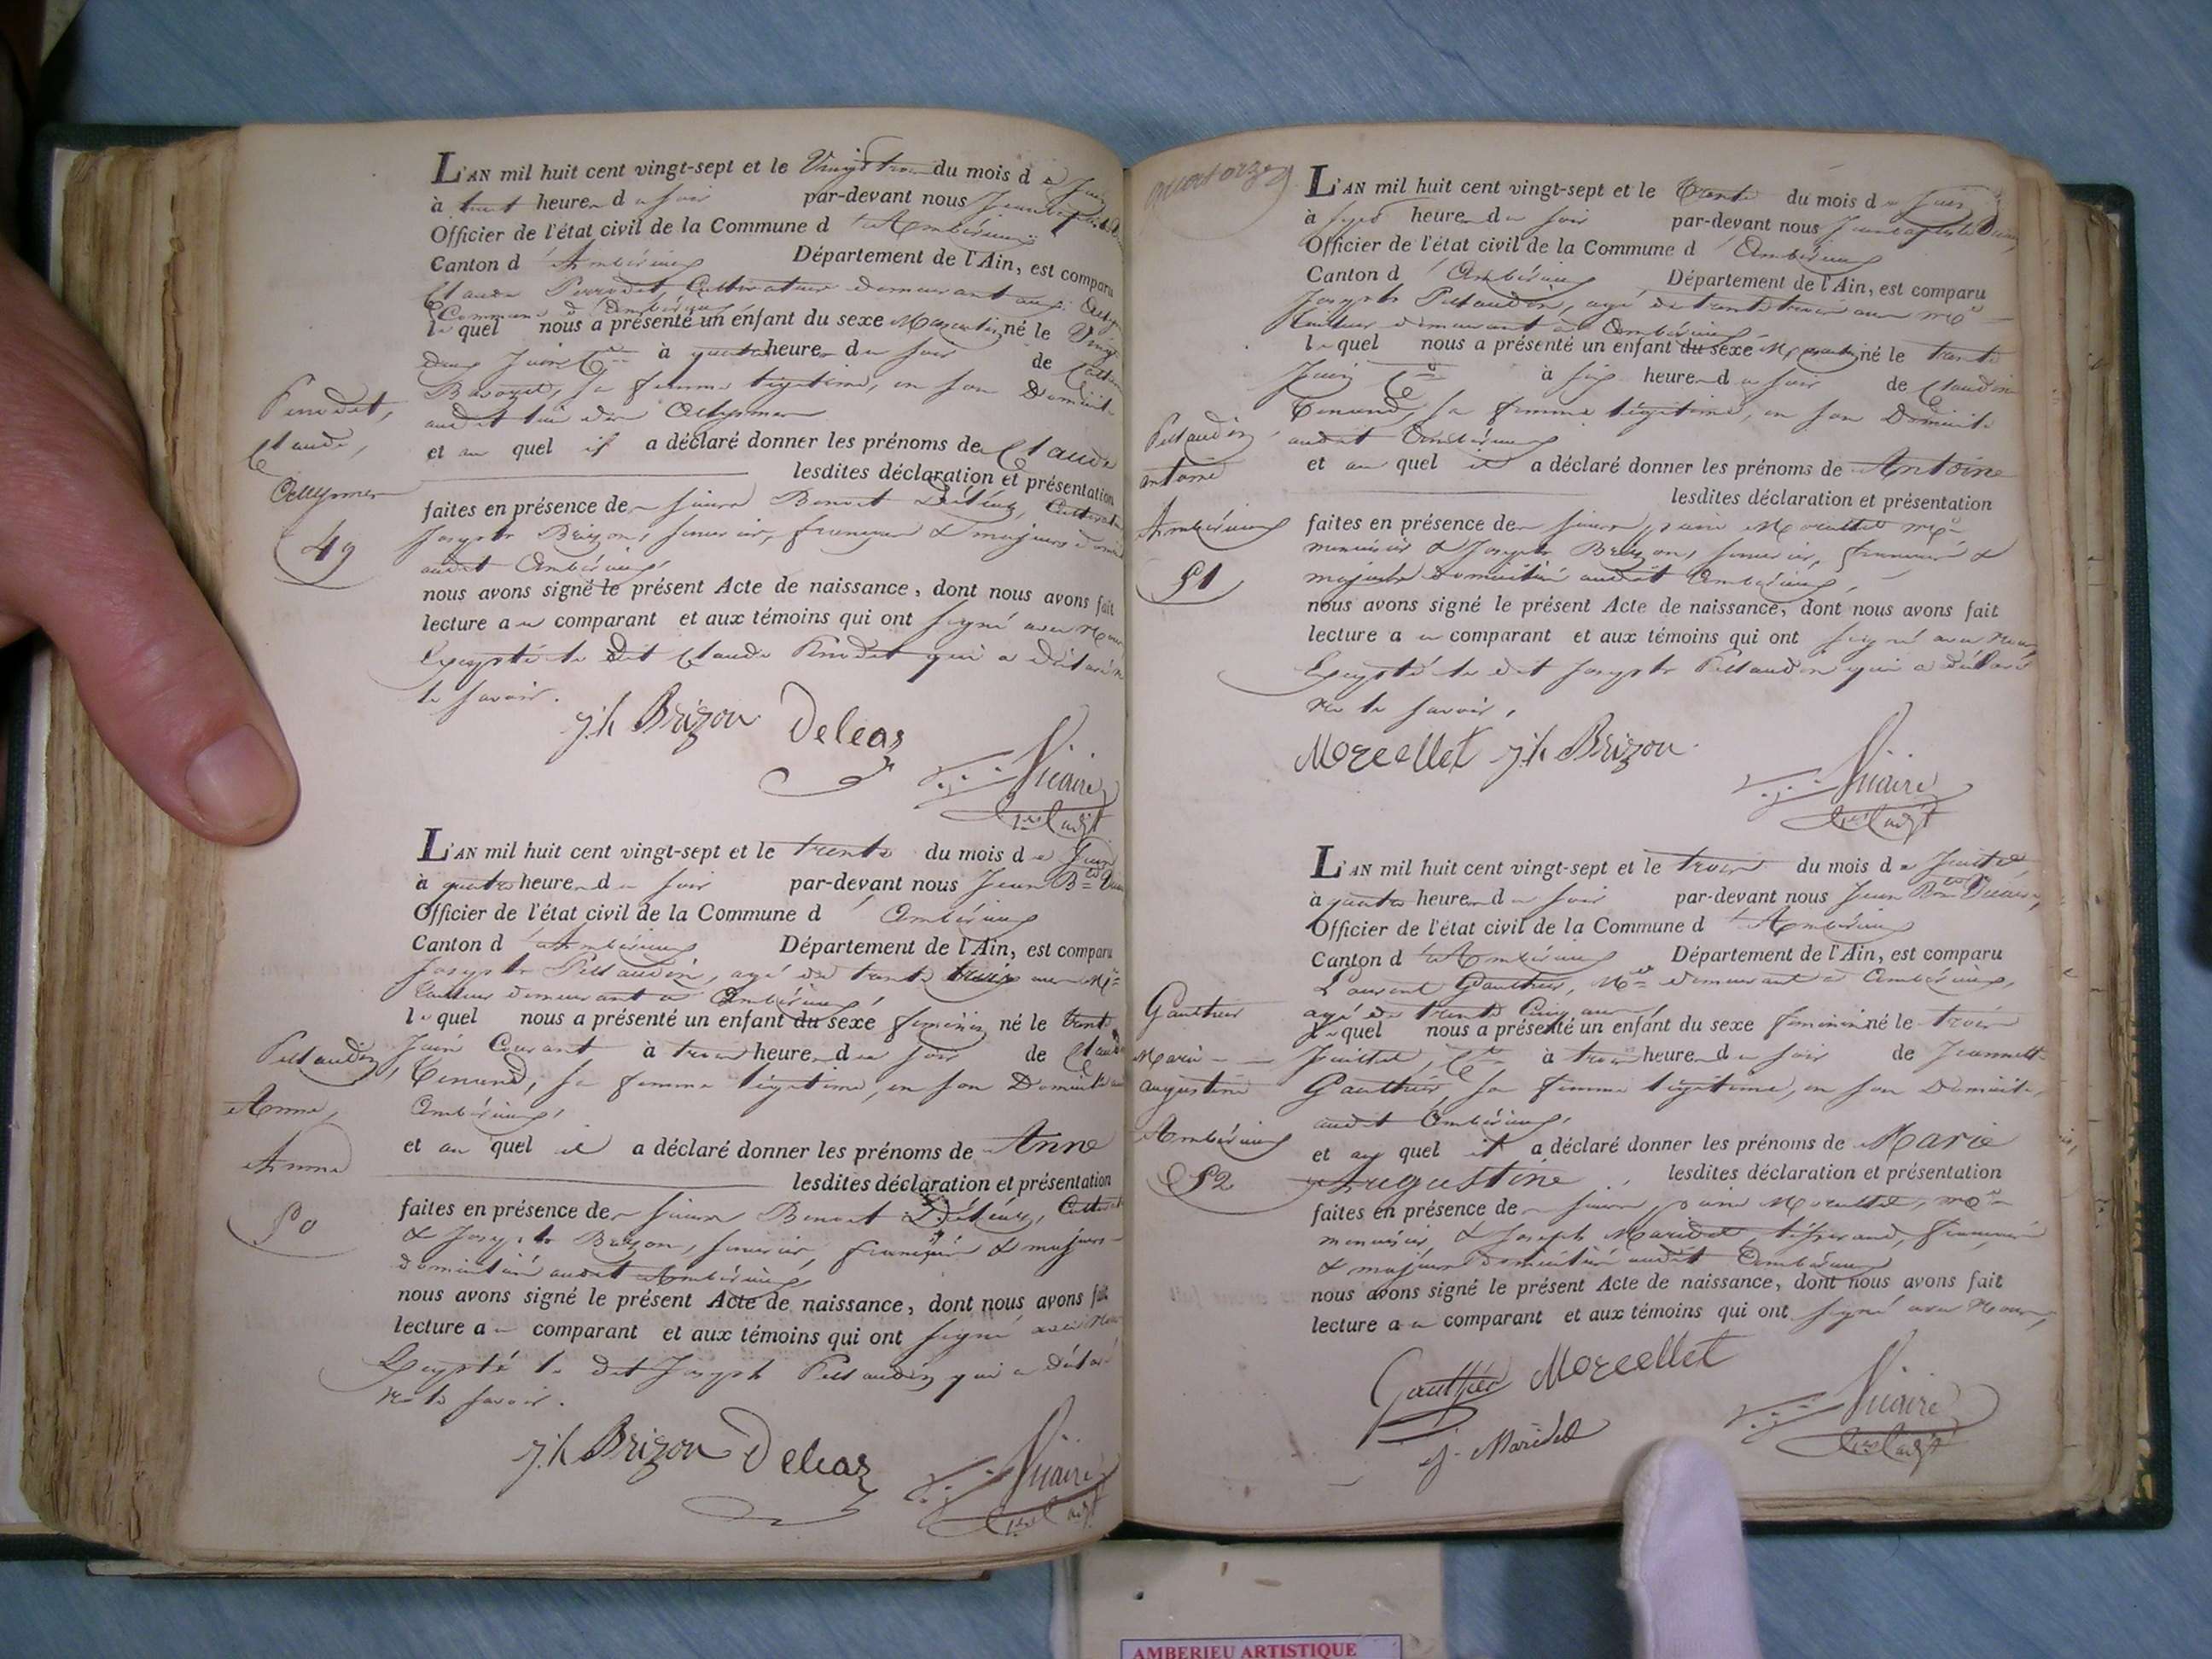 L'AN mil huit cent vingt-sept et le Vingt trois du mois de Juin
à huit heures du soir par-devant nous Jean baptiste
Officier de l'état civil de la Commune d'Ambérieux
Canton d'Ambérieux Département de l'Ain, est comparu
Claude Perrodet, Cultivateur demeurant aux
Commune d'Ambérieux
lequel nous a présenté un enfant du sexe Masculin né le Vingt
deux Juin Ct à quatre heures du soir de
sa femme légitime, en son Domicile
audit lieu des Allymes
et au quel il a déclaré donner les prénoms de Claude
lesdites déclaration et présentation
faites en présence des sieurs Benoit Déléaz, Cultivateur
Joseph Brizon, français & majeurs
audit Ambérieux,
nous avons signé le présent Acte de naissance, dont nous avons fait
lecture au comparant et aux témoins qui ont signé avec Nous
Excepté le dit Claude Perrodet qui a déclaré ne
le savoir.
Jh Brizon Deleaz
Vicaire
Perrodet,
Claude,
Allymes
49
L'AN mil huit cent vingt-sept et le trente du mois de Juin
à quatre heures du soir par-devant nous Jean Bte
Officier de l'état civil de la Commune d'Ambérieux
Canton d'Ambérieux Département de l'Ain, est comparu
Joseph Pellaudin, agé de trente trois ans Md
tailleur demeurant à Ambérieux,
lequel nous a présenté un enfant du sexe féminin né le trente
Juin Courant à trois heures du soir de Claudine
Tenand, sa femme légitime, en son Domicile
Ambérieux,
et au quel il a déclaré donner les prénoms de Anne
lesdites déclaration et présentation
faites en présence des sieurs Benoit Déléaz,
& Joseph Brizon, français & majeurs
domiciliés audit Ambérieux,
nous avons signé le présent Acte de naissance, dont nous avons fait
lecture au comparant et aux témoins qui ont signé avec Nous
Excepté le dit Joseph Pellaudin qui a déclaré
ne le savoir.
Jh Brizon Deleaz
Vicaire
Pellaudin,
Anne,
50
L'AN mil huit cent vingt-sept et le trente du mois de Juin
à heures du soir par-devant nous Jean baptiste
Officier de l'état civil de la Commune d'Ambérieux
Canton d'Ambérieux Département de l'Ain, est comparu
Joseph Pellaudin, agé de trente trois ans Md
tailleur demeurant à Ambérieux
lequel nous a présenté un enfant du sexe Masculin né le trente
Juin Ct à six heures du soir de Claudine
Tenand, sa femme légitime, en son Domicile
audit Ambérieux
et au quel il a déclaré donner les prénoms de Antoine
lesdites déclaration et présentation
faites en présence des sieurs Morcellet Md
menuisier & Joseph Brizon, français &
majeurs Domiciliés audit Ambérieux,
nous avons signé le présent Acte de naissance, dont nous avons fait
lecture au comparant et aux témoins qui ont signé avec Nous
Excepté le dit Joseph Pellaudin qui a déclaré
ne le savoir,
Morcellet Jh Brizon
Vicaire
Pellaudin
antoine
Ambérieux
51
L'AN mil huit cent vingt-sept et le trois du mois de Juillet
à quatre heures du soir par-devant nous Jean Bte
Officier de l'état civil de la Commune d'Ambérieux
Canton d'Ambérieux Département de l'Ain, est comparu
Laurent Gauthier, Md demeurant à Ambérieux,
agé de trente Cinq ans
lequel nous a présenté un enfant du sexe féminin né le trois
Juillet, Ct à trois heures du soir de Jeannette
Gauthier, sa femme légitime, en son Domicile
audit Ambérieux,
et au quel il a déclaré donner les prénoms de Marie
Augustine lesdites déclaration et présentation
faites en présence des sieurs Morcellet, Md
menuisier, & Joseph Maridet, tisserand, français
& majeurs domiciliés audit Ambérieux
nous avons signé le présent Acte de naissance, dont nous avons fait
lecture au comparant et aux témoins qui ont signé avec Nous,
Gauthier Morcellet
j. Maridet
Vicaire
Gauthier
Marie
augustine
Ambérieux
52
AMBERIEU ARTISTIQUE